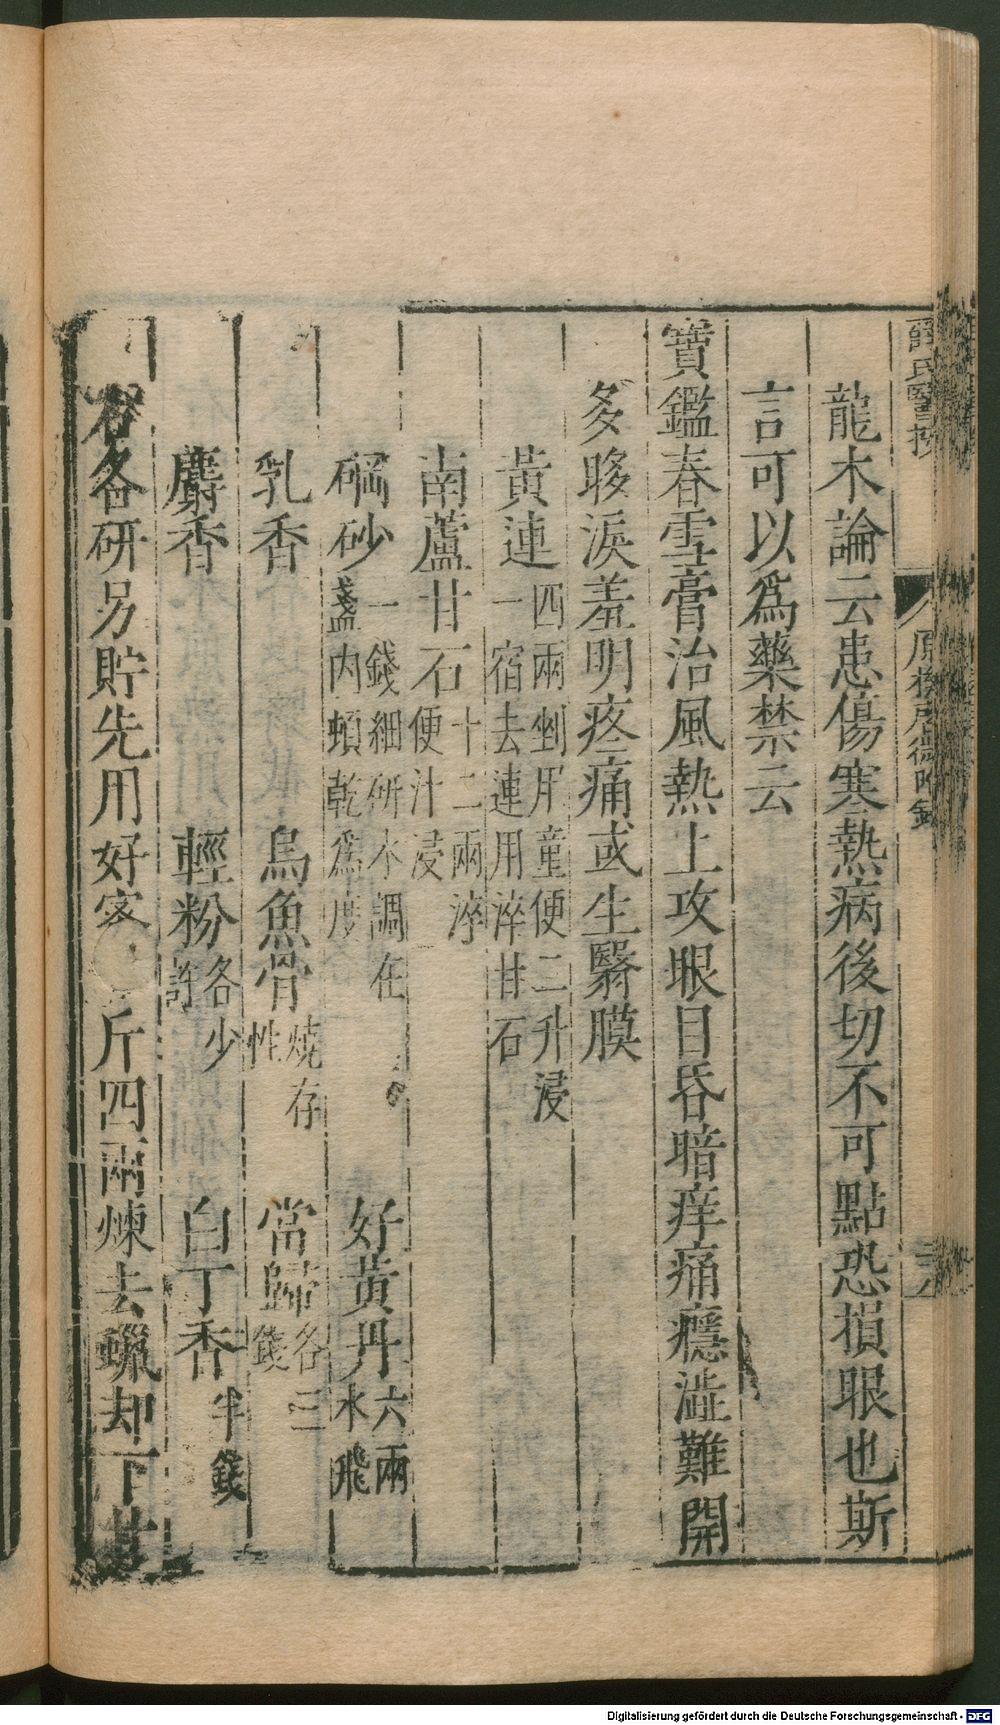 薛氏醫按
原機啟微附錄
龍木論云患傷寒熱病後切不可點恐損眼也斯
言可以爲藥禁云
寶鑑春雪膏治風熱上攻眼目昏暗痒痛癮澁難開
多眵淚羞明疼痛或生翳膜
黃連四兩剉用童便二升浸一宿去連用淬甘石
南蘆甘石十二兩淬便汁浸
硇砂一錢細研水調在盞内頓乾爲度 好黃丹六兩水飛
乳香 烏魚骨燒存性 當歸各三錢
麝香 輕粉各少許 白丁香半錢
右各研另貯先用好蜜 斤四兩煉去蠟却下甘
Digitalisierung gefördert durch die Deutsche Forschungsgemeinschaft - DFG